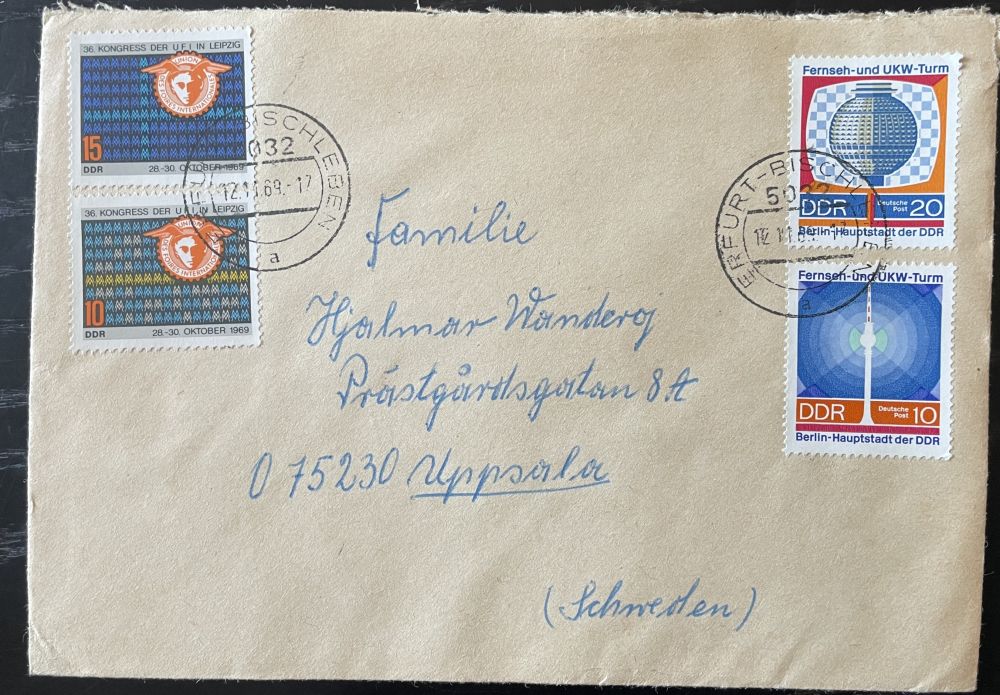 36. KONGRESS DER UFI IN LEIPZIG
UNION
DES FOIRES INTERNATIONALES
15
DDR
28.-30. OKTOBER 1969
36. KONGRESS DER UFI IN LEIPZIG
UNION
DES FOIRES INTERNATIONALES
10
DDR
28.-30. OKTOBER 1969
BISCHLEBEN
5032
-17
a
Fernseh-und UKW-Turm
DDR
Deutsche
Post
20
Berlin-Hauptstadt der DDR
ERFURT-BISCHLEBEN
5032
a
Fernseh-und UKW-Turm
DDR
Deutsche
Post
10
Berlin-Hauptstadt der DDR
Familie
Hjalmar Wanderg
Prästgårdsgatan 8A
0 75230 Uppsala
(Schweden)